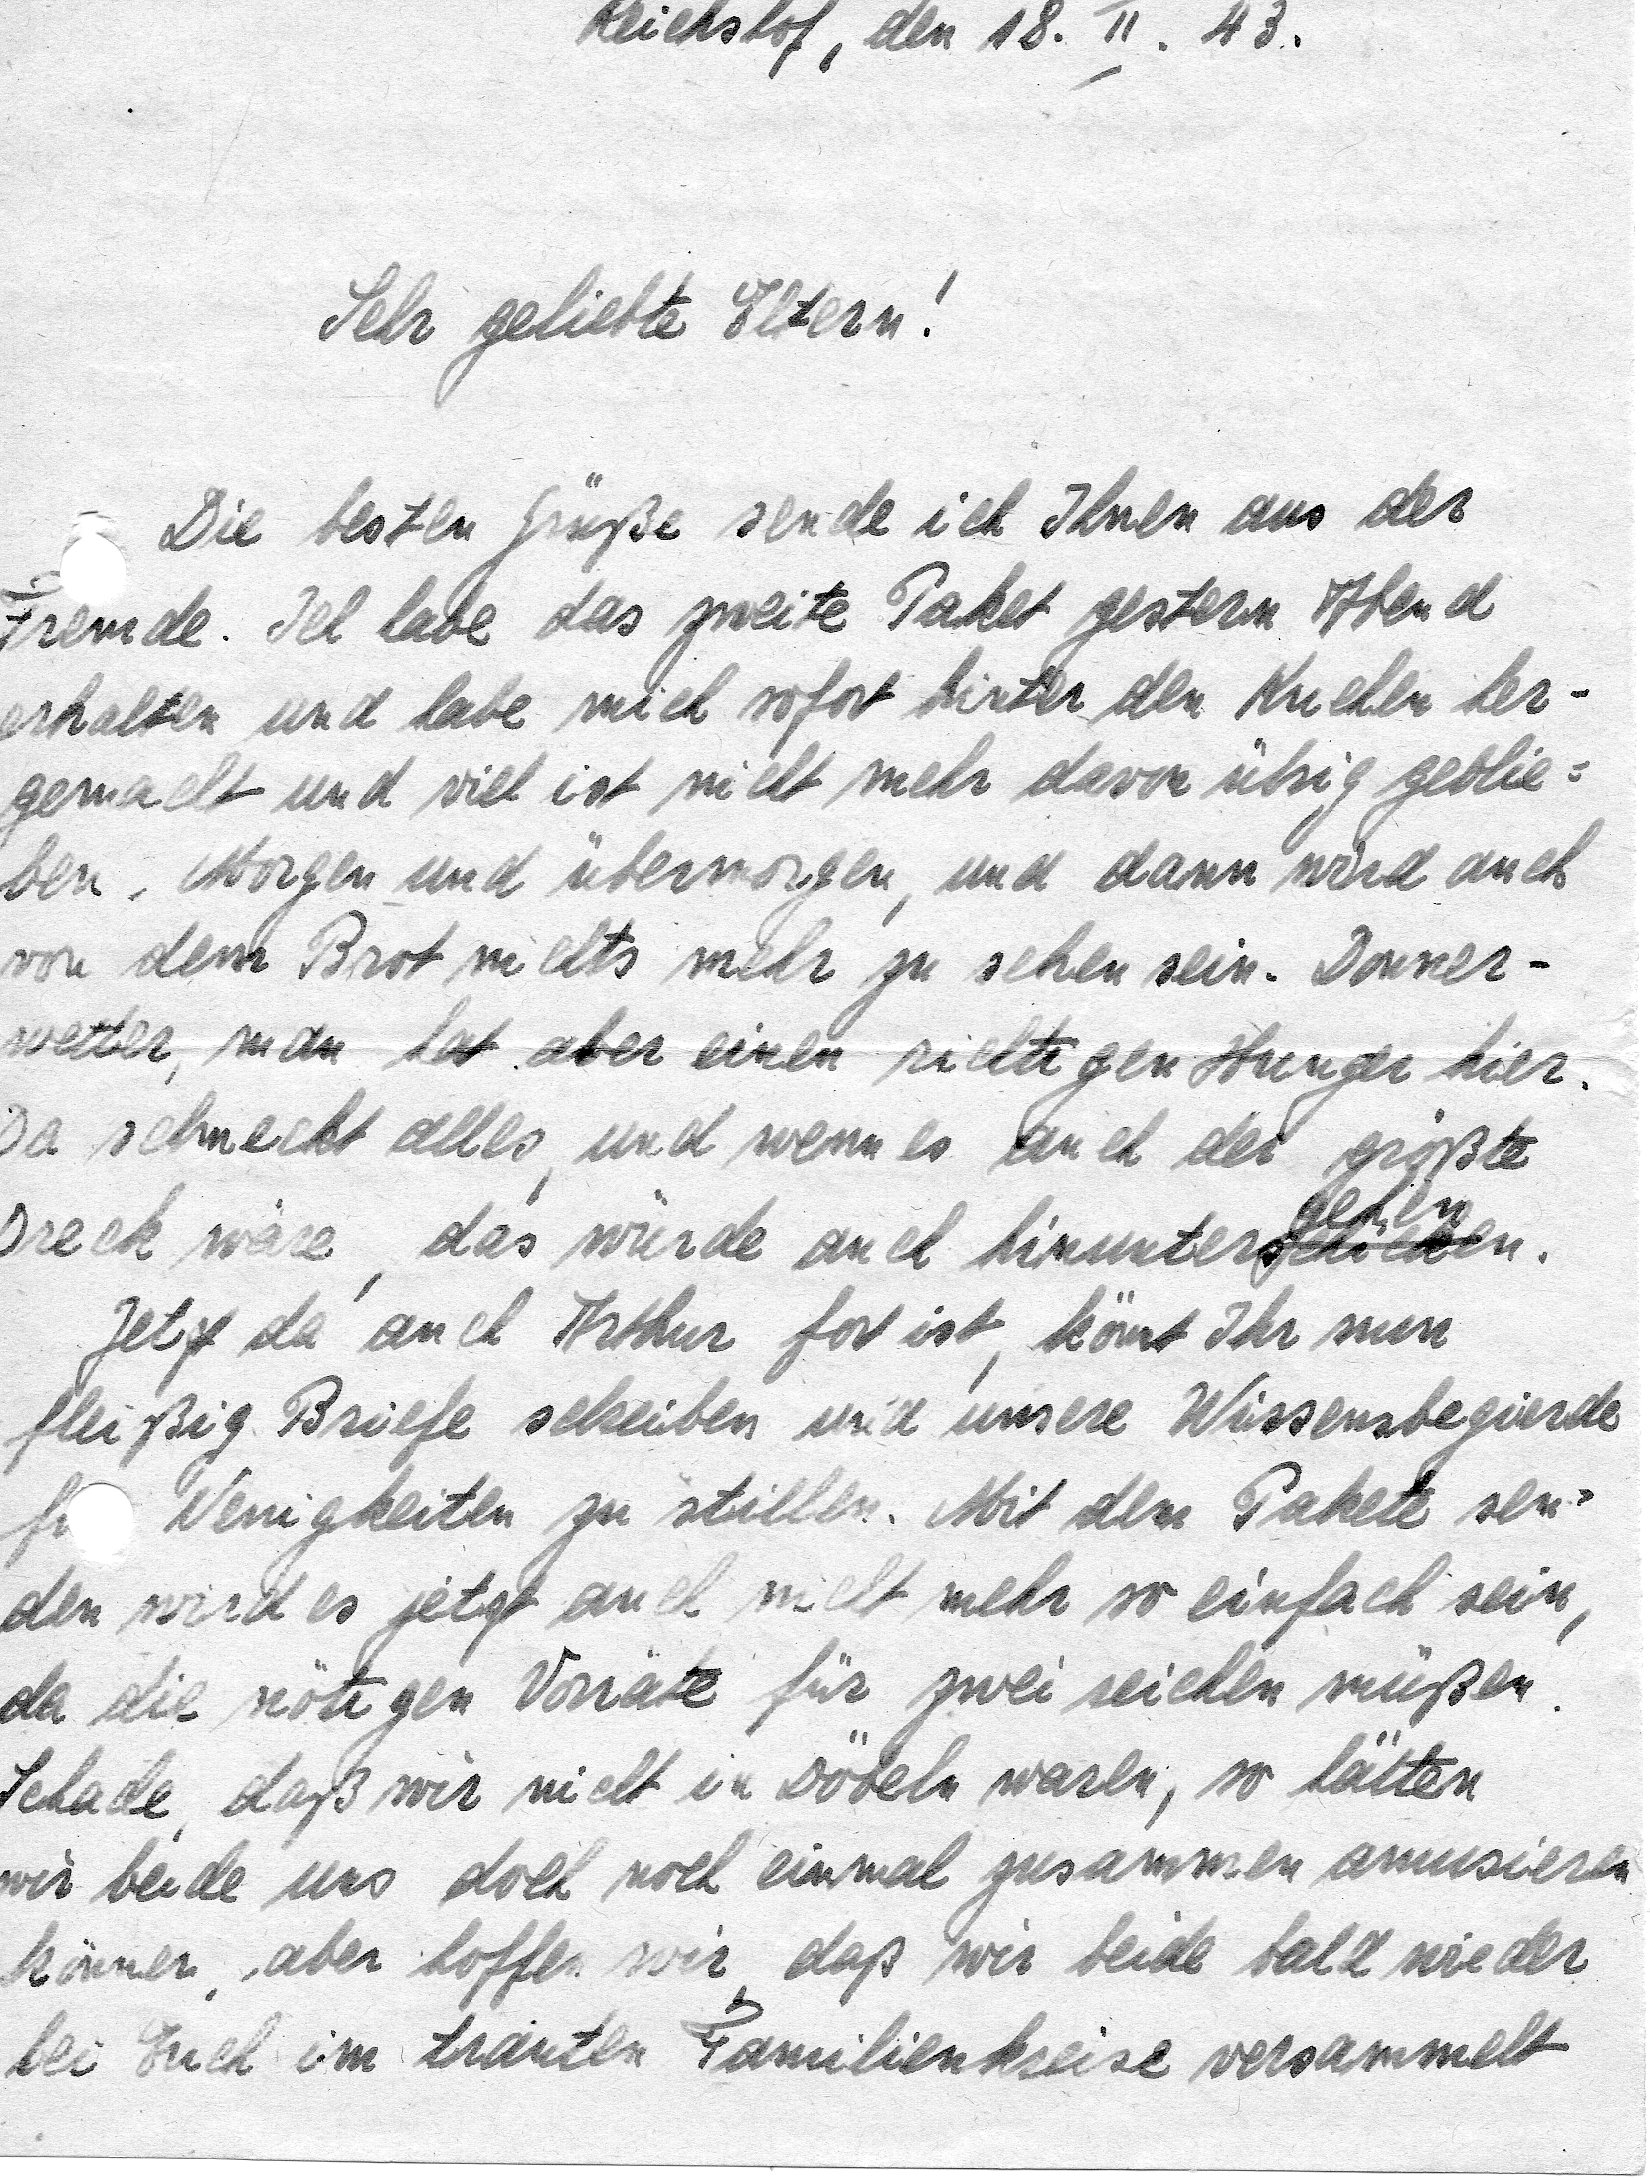 Reichshof, den 18. II. 43.
Sehr geliebte Eltern!
Die besten Grüße sende ich Ihnen aus der
Fremde. Ich habe das zweite Paket gestern Abend
erhalten und habe mich sofort hinter den Kuchen her-
gemacht und viel ist nicht mehr davon übrig geblie=
ben. Morgen und übermorgen, und dann wird auch
von dem Brot nichts mehr zu sehen sein. Donner-
wetter, man hat aber einen richtigen Hunger hier.
Da schmeckt alles, und wenn es auch der größte
Dreck wäre, das würde auch hinuntergehen.
Jetzt da auch Arthur fort ist, könnt Ihr nun
fleißig Briefe schreiben und unsere Wissensbegierde
Wenigkeiten zu stillen. Mit dem Pakete sen=
den wird es jetzt auch nicht mehr so einfach sein,
da die nötigen Vorräte für zwei reichen müßen.
Schade, daß wir nicht in Döbeln waren, so hätten
wir beide uns doch noch einmal zusammen amusieren
können, aber hoffen wir, daß wir beide bald wieder
bei Euch im trauten Familienkreise versammelt